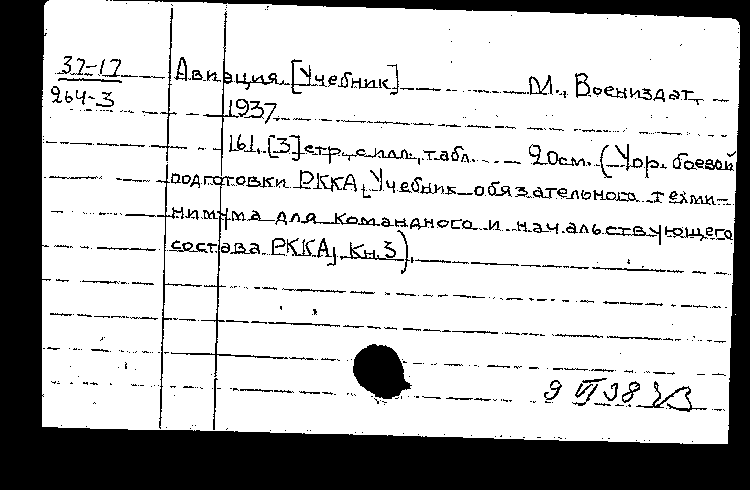 37-17
264-3
Авиация [Учебник] М., Воениздат,
1937
161, [3] стр., с илл., табл. 20см. (Упр. боевой
подготовки РККА, Учебник обязательного техми-
нимума для командного и начальствующего
состава РККА, Кн.3).
9 VI 38